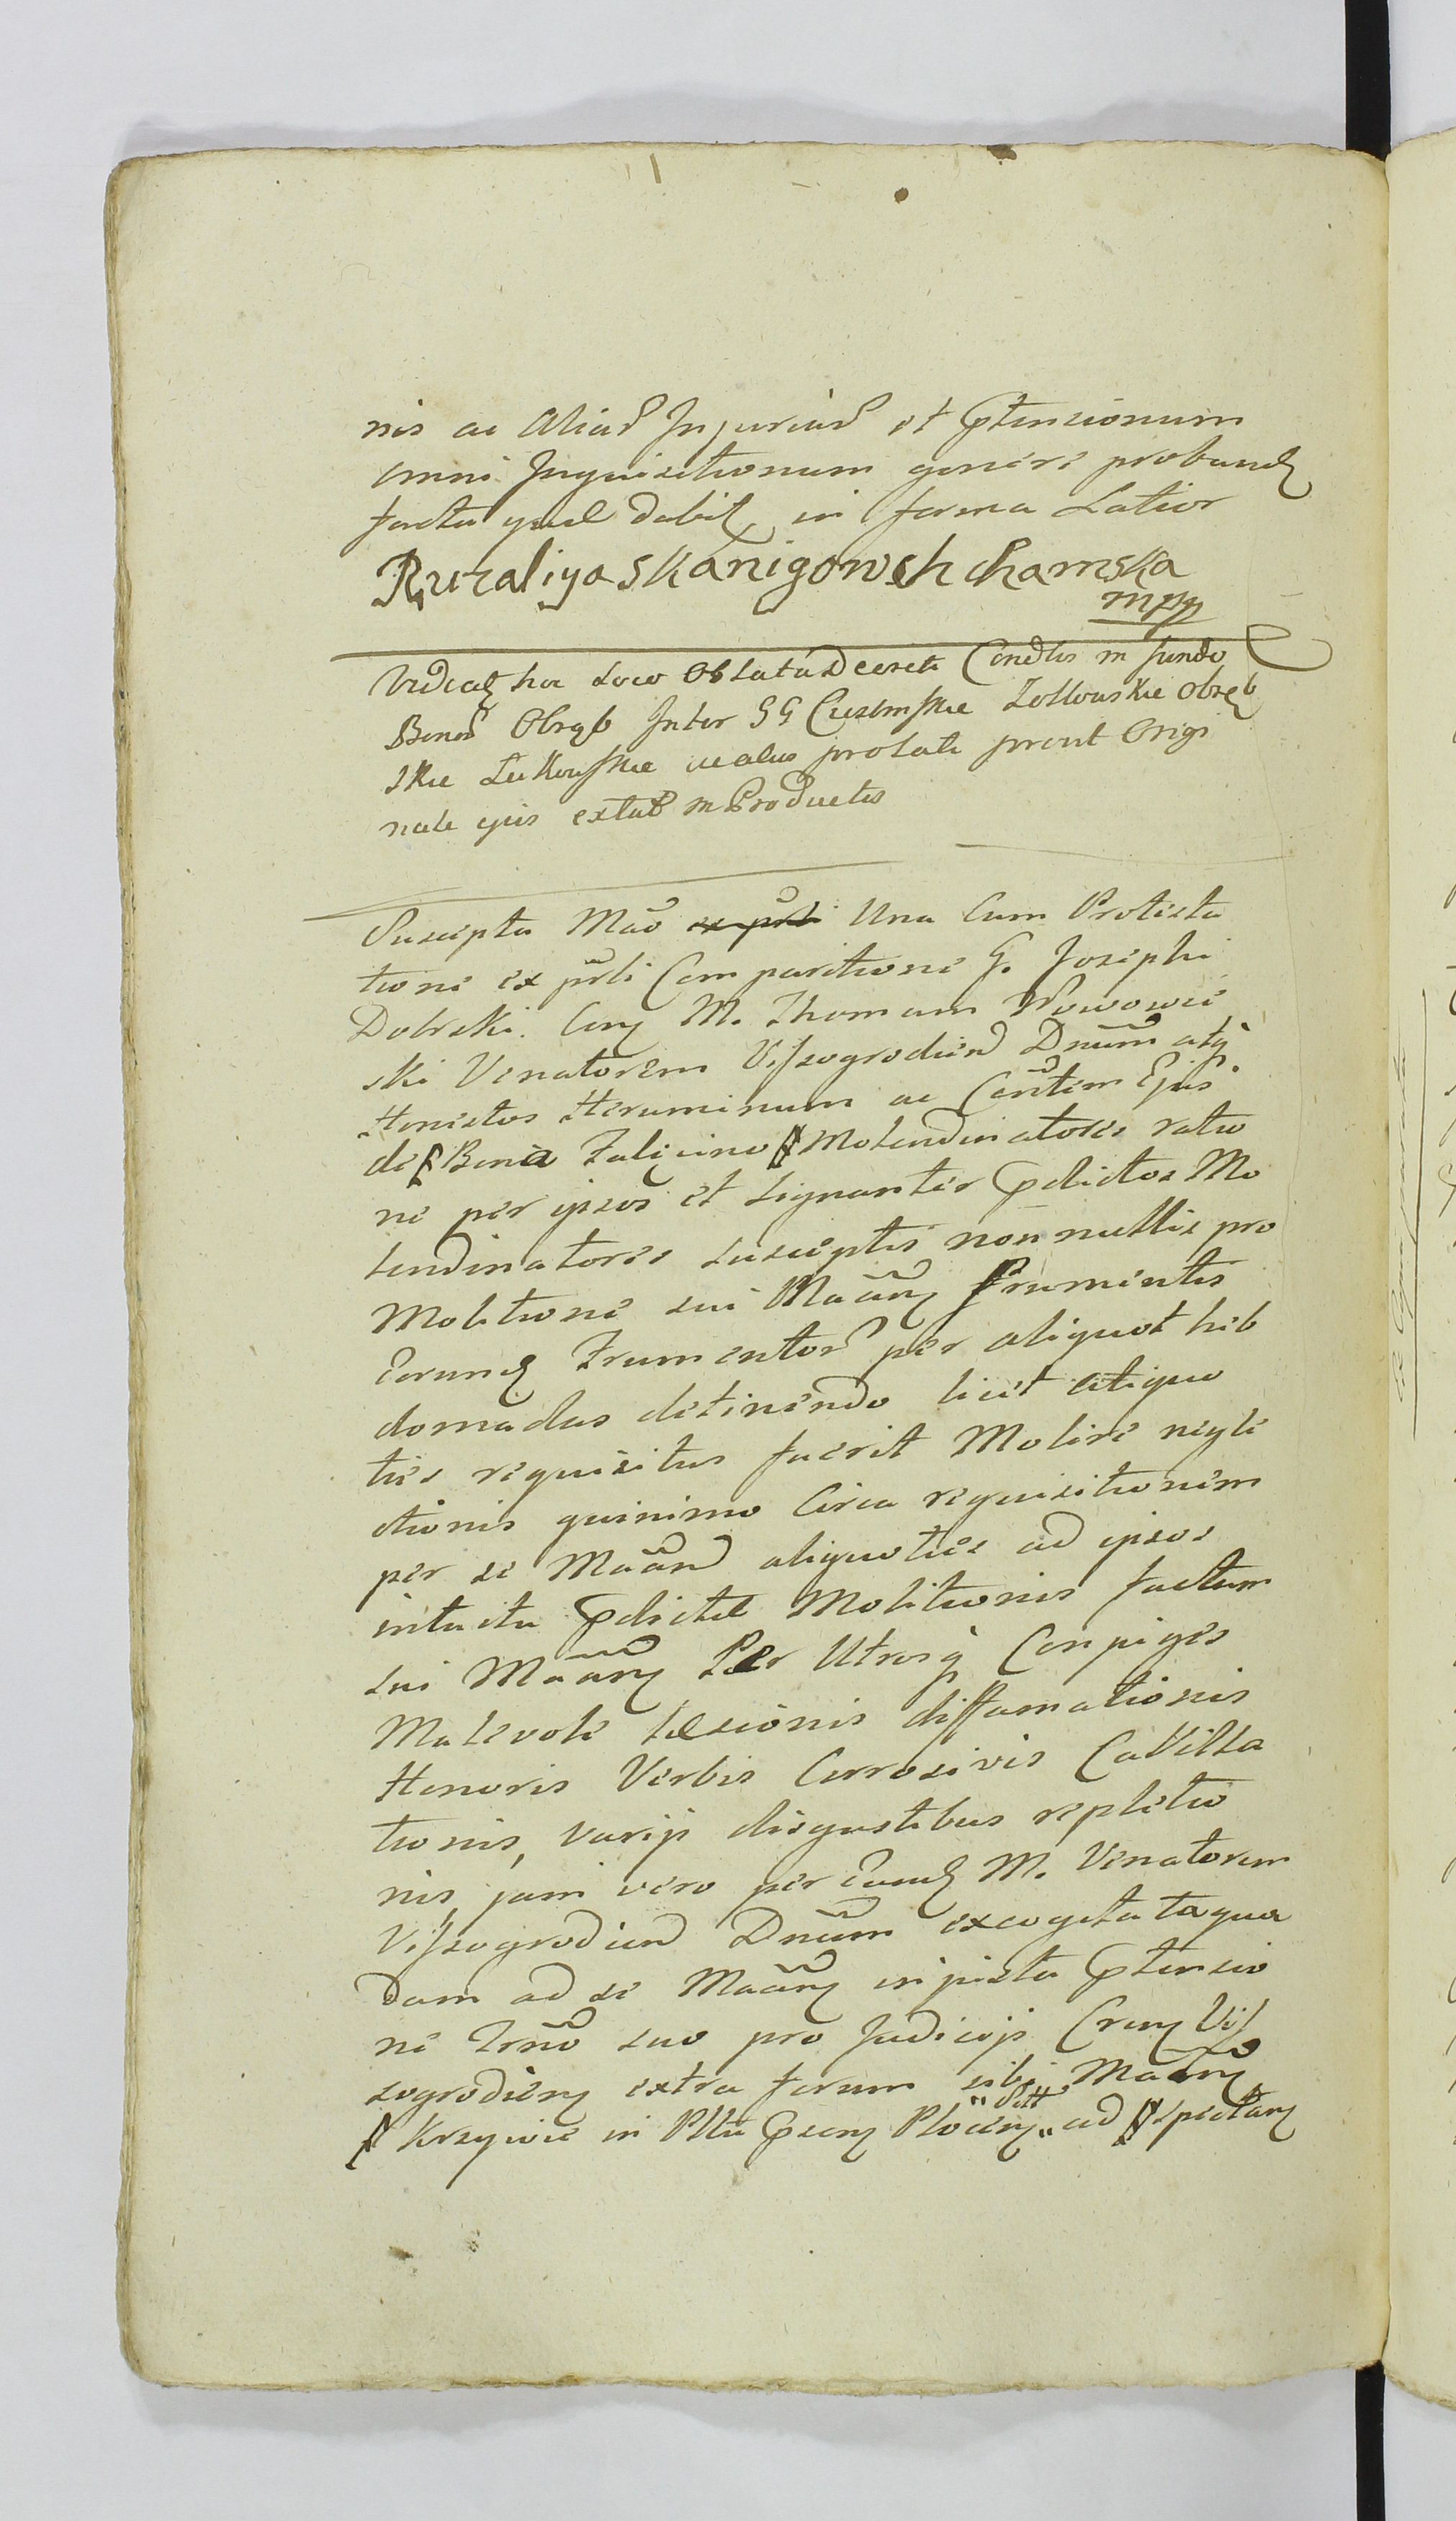 nis ac Aliar Injuriar et Ptensionum
omni Inquisitionum genere proband
facta que dabit in forma Latior
Ruraliya Skanigowsh chamska
mpp
Videatz hoc loco Oblata Decreti Condlis in fundo
Bonor Obręb Inter GG Ciesimskie Zottowskie Obręb
skie Lukowskie ac alios prolati prout Origi
nale ejus extat in Productis
Suscepta Mão ex pñti Una Cum Protesta
tione ex pñti Comparitione G. Josephi
Dobrski. Cony M. Thomam Nowowie
ski Venatorem Vissogrodien Dnũm atq
Honestos Heruminum ac Conltem Ejus
de Bonis Falięcino Molendinatores ratio
ne per ipsos et signanter Pdictos Mo
lendinatores susceptis non nullis pro
Molitione sui Maãny Frumentis
Eorund Frumentor per aliquot heb
domadas detinendo licet aliquo
ties requisitus fuerit Molire negle
ctionis quinimo Circa requisitionem
per se Maãnd aliquoties ad ipsos
intuitu Pdictæ Molitionis factum
sui Maãny Per Utrosq Conjuges
Malevole læsionis diffamationis
Honoris Verbis Corrosivis Cavilla
tionis, varijs disgustibus repletio
nis jam vero per Eund M. Venatorem
Vissogrodien Dnũm excogitata qua
dam ad se Maãny injusta Ptensio
ne Trño suo pro Judicijs Crens Vis
sogrodieny extra forum sibi Maãny
Krzywie in Pttu Pseny Plocieny „ ad spectany
„ Dttt